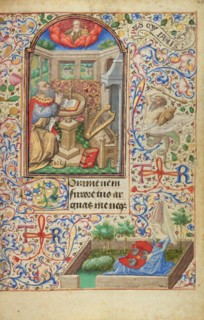 Domine ne in
furore tuo ar
guas me neq